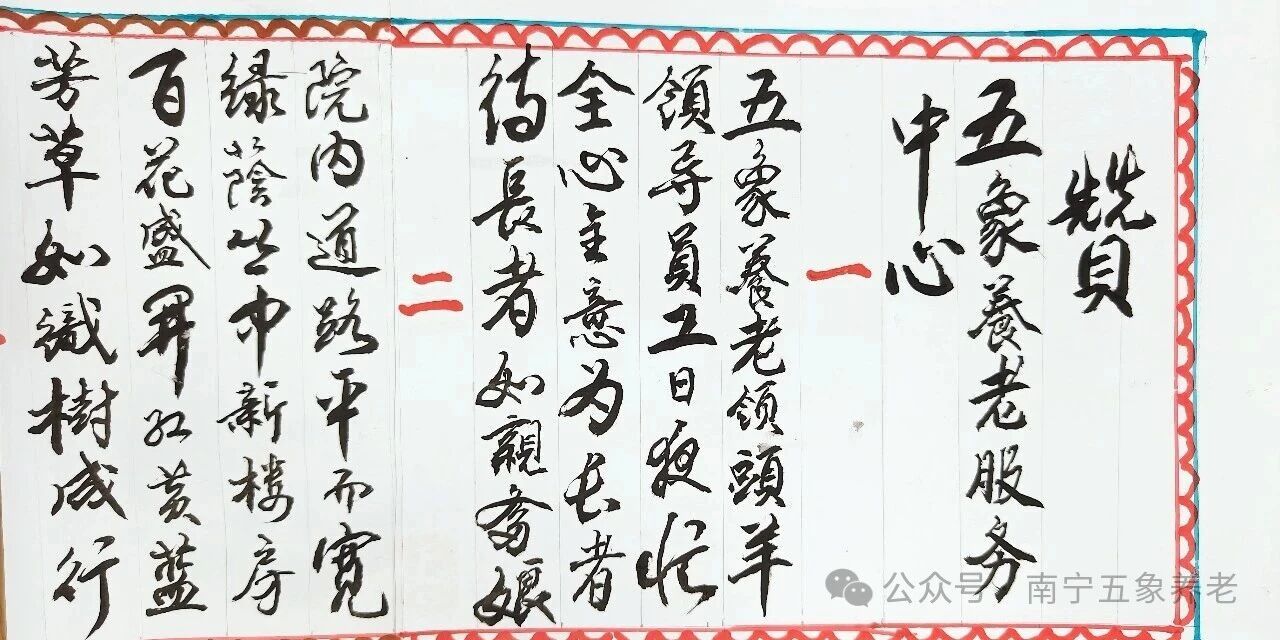 贊
五象養老服务
中心
一
五象養老领頭羊
領导員工日夜忙
全心全意为长者
待長者如親爹娘
二
院内道路平而寬
绿蔭丛中新楼房
百花盛開红黄蓝
芳草如織樹成行
公众号·南宁五象养老